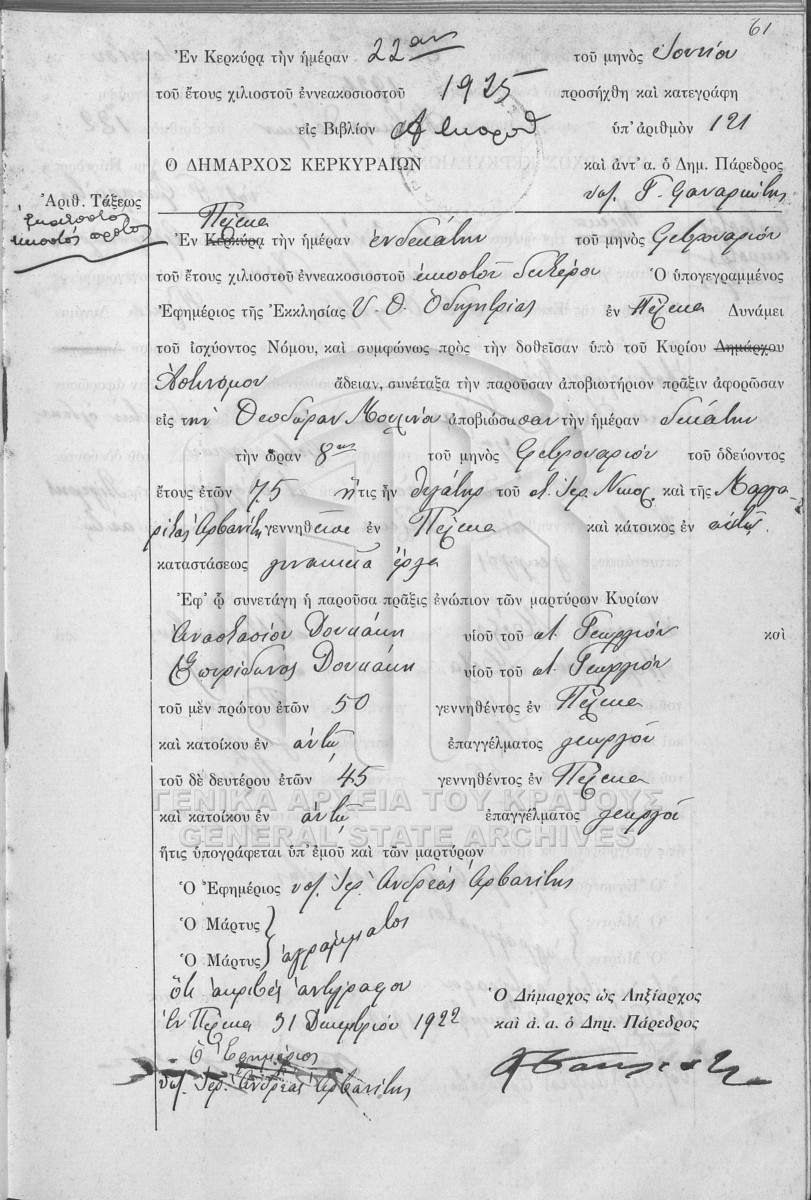 61
Ἐν Κερκύρᾳ τὴν ἡμέραν 22αν τοῦ μηνὸς Ἰουνίου
τοῦ ἔτους χιλιοστοῦ ἐννεακοσιοστοῦ 1925 προσήχθη καὶ κατεγράφη
εἰς Βιβλίον ὑπ' ἀριθμὸν 121
Ο ΔΗΜΑΡΧΟΣ ΚΕΡΚΥΡΑΙΩΝ καὶ ἀντ' α. ὁ Δημ. Πάρεδρος
Ἀριθ. Τάξεως
ἑκατοστὸς
εἰκοστὸς πρῶτος
Πέλεκα
Ἐν Κερκύρᾳ τὴν ἡμέραν ἑνδεκάτην τοῦ μηνὸς Φεβρουαρίου
τοῦ ἔτους χιλιοστοῦ ἐννεακοσιοστοῦ εἰκοστοῦ δευτέρου Ὁ ὑπογεγραμμένος
Ἐφημέριος τῆς Ἐκκλησίας Υ. Θ. Ὁδηγητρίας ἐν Πέλεκα Δυνάμει
τοῦ ἰσχύοντος Νόμου, καὶ συμφώνως πρὸς τὴν δοθεῖσαν ὑπὸ τοῦ Κυρίου Δημάρχου
Ἀστυνόμου ἄδειαν, συνέταξα τὴν παροῦσαν ἀποβιωτήριον πρᾶξιν ἀφορῶσαν
εἰς τὴν Θεοδώραν ἀποβιώσασαν τὴν ἡμέραν δεκάτην
τὴν ὥραν 8ην τοῦ μηνὸς Φεβρουαρίου τοῦ ὁδεύοντος
ἔτους ἐτῶν 75 ἥτις ἦν θυγάτηρ τοῦ π. Ἱερ. Νικολ. καὶ τῆς Μαργα-
ρίτας Ἀρβανίτη γεννηθεῖσα ἐν Πέλεκα καὶ κάτοικος ἐν αὐτῷ
καταστάσεως γυναικεῖα ἔργα
Ἐφ' ᾧ συνετάγη ἡ παροῦσα πρᾶξις ἐνώπιον τῶν μαρτύρων Κυρίων
Ἀναστασίου Δουκάκη υἱοῦ τοῦ π. Γεωργίου καὶ
Σπυρίδωνος Δουκάκη υἱοῦ τοῦ π. Γεωργίου
τοῦ μὲν πρώτου ἐτῶν 50 γεννηθέντος ἐν Πέλεκα
καὶ κατοίκου ἐν αὐτῷ ἐπαγγέλματος γεωργοῦ
τοῦ δὲ δευτέρου ἐτῶν 45 γεννηθέντος ἐν Πέλεκα
ΓΕΝΙΚΑ ΑΡΧΕΙΑ ΤΟΥ ΚΡΑΤΟΥΣ
καὶ κατοίκου ἐν αὐτῷ ἐπαγγέλματος γεωργοῦ
GENERAL STATE ARCHIVES
ἥτις ὑπογράφεται ὑπ' ἐμοῦ καὶ τῶν μαρτύρων
Ὁ Ἐφημέριος υπ. Ἱερ. Ἀνδρέας Ἀρβανίτης
Ὁ Μάρτυς
Ὁ Μάρτυς ἀγράμματοι
Ὅτι ἀκριβὲς ἀντίγραφον Ὁ Δήμαρχος ὡς Ληξίαρχος
Ἐν Πέλεκα 31 Δεκεμβρίου 1922 καὶ ἀ. α. ὁ Δημ. Πάρεδρος
Ὁ Ἐφημέριος
υπ. Ἱερ. Ἀνδρέας Ἀρβανίτης